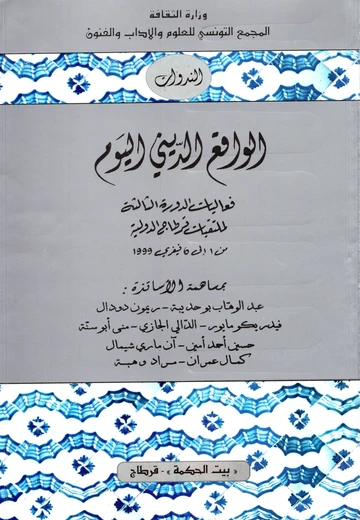 وزارة الثقافة
المجمع التونسي للعلوم والآداب والفنون
الندوات
الواقع الدّيني اليوم
فعاليات الدورة الثالثة
لملتقيات قرطاج الدولية
من 1 إلى 6 فيفري 1999
بمساهمة الأساتذة :
عبد الوهّاب بوحديبة - ريمون دودال
فيدريكو مايور - الدّالي الجازي - منى أبوستة
حسين أحمد أمين - آن ماري شيمال
كمال عمران - مراد وهبة
« بيت الحكمة » - قرطاج